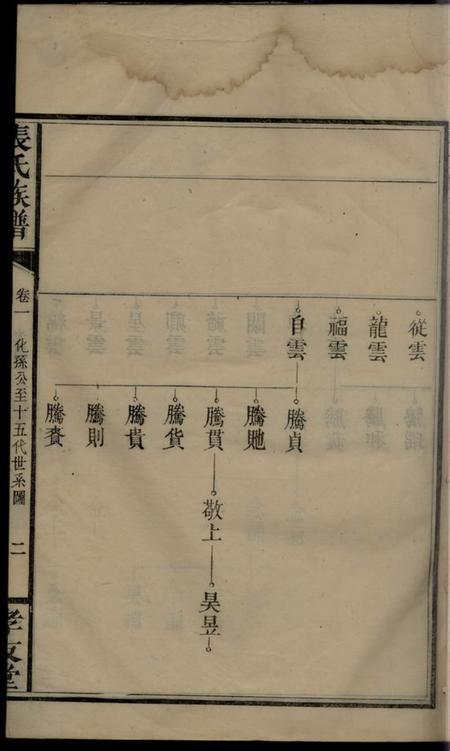 從雲
龍雲
福雲
自雲
騰貞
騰貤
騰貫
騰貨
騰貴
騰則
騰賚
敬上
昊昱
張氏族譜
卷一
化孫公至十五代世系圖
二
孝友堂